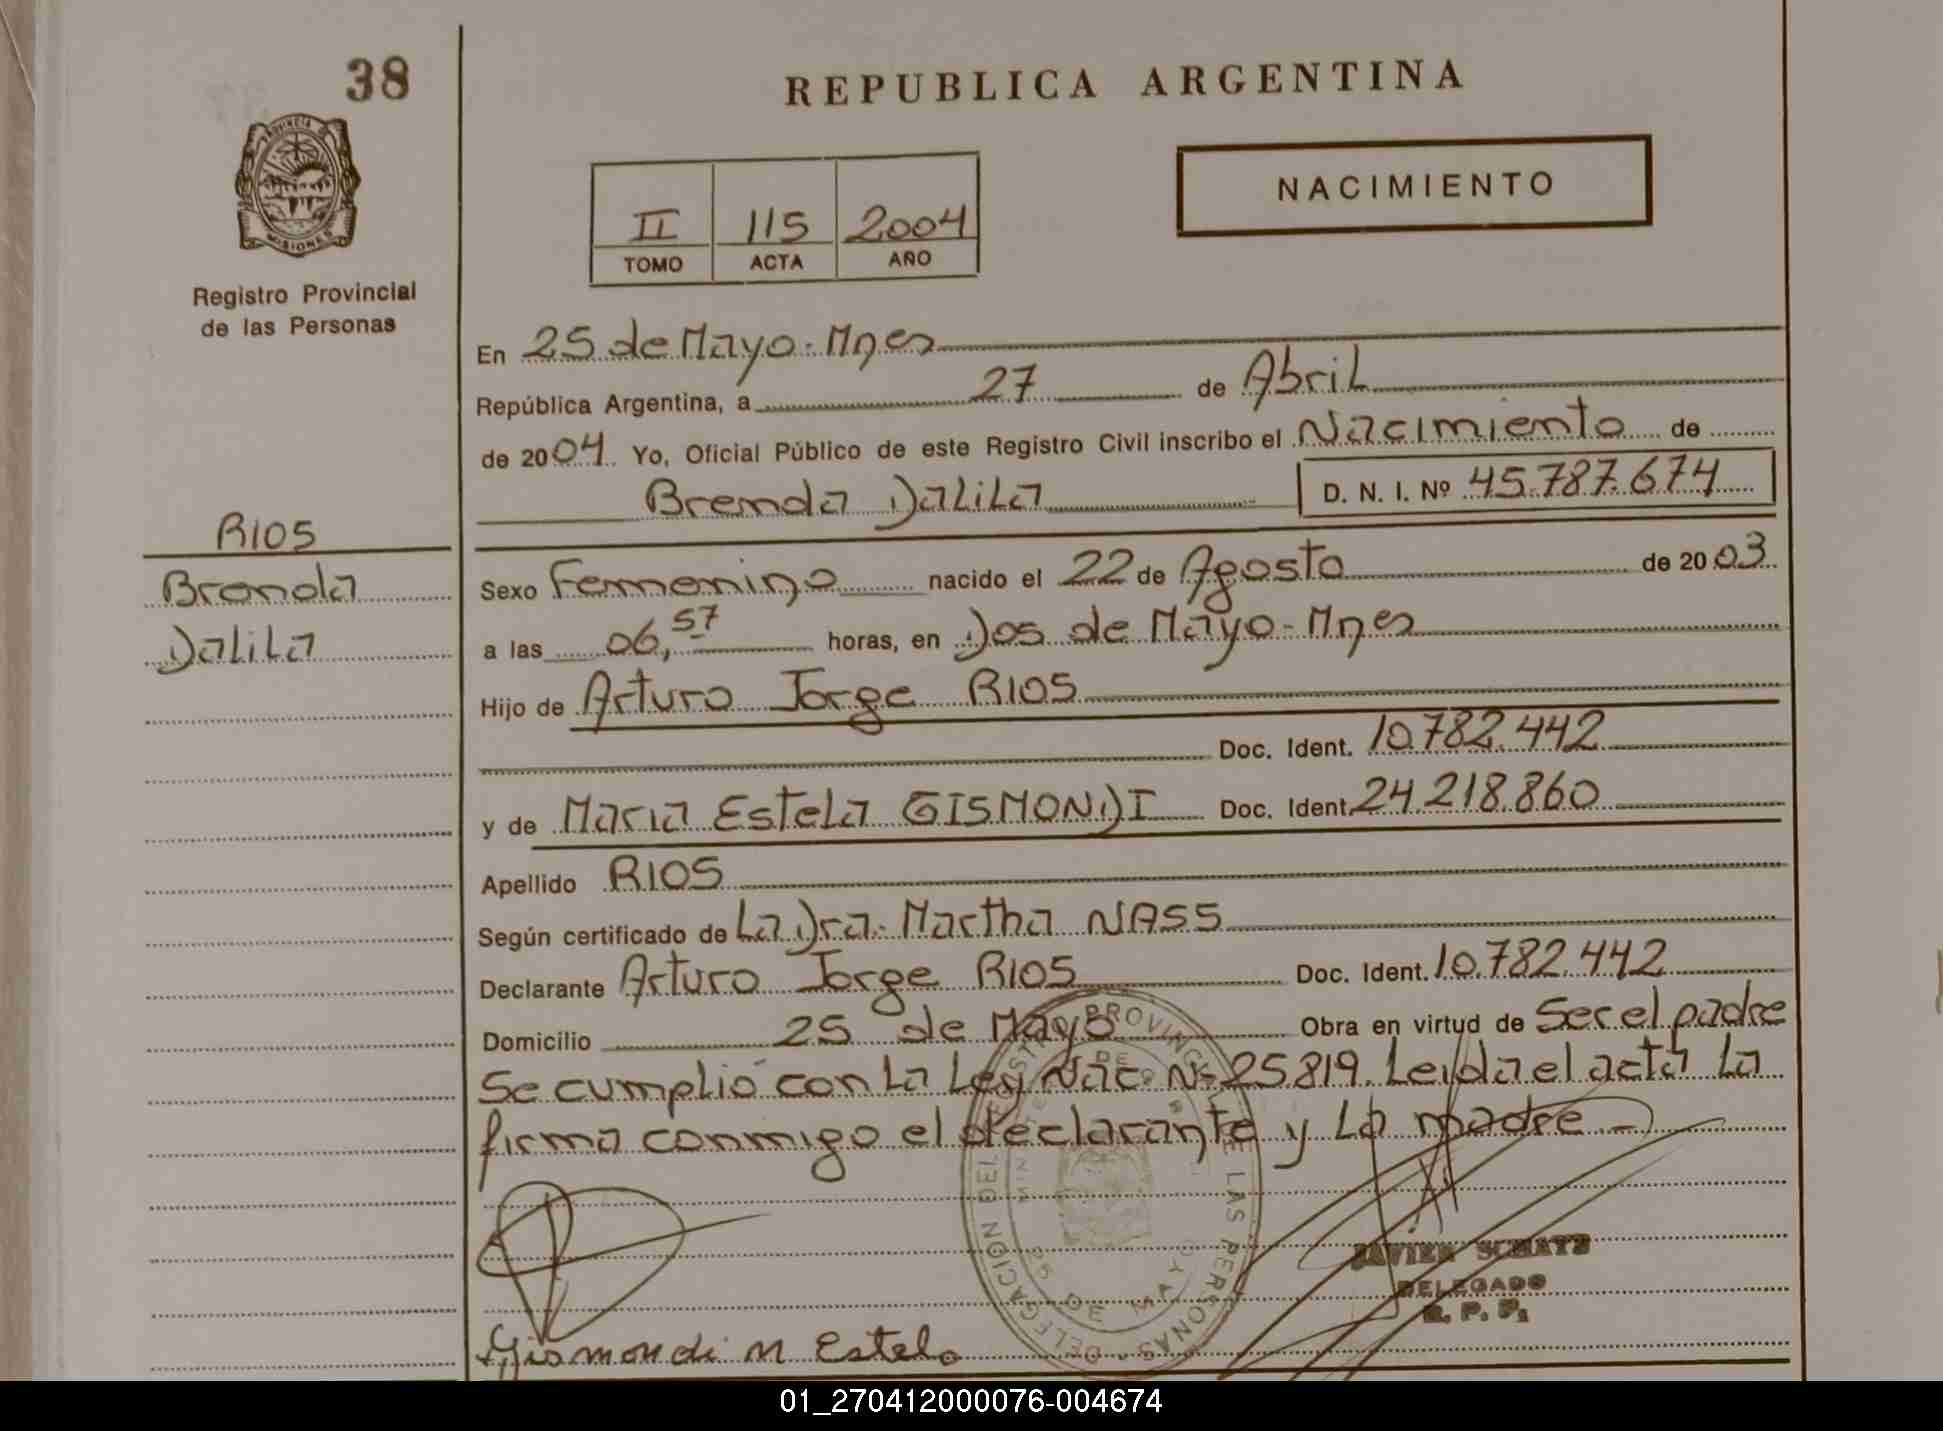 38
REPUBLICA ARGENTINA
PROVINCIA DE
MISIONES
NACIMIENTO
II 115 2004
TOMO ACTA AÑO
Registro Provincial
de las Personas
En 25 de Mayo - Mnes
República Argentina, a 27 de Abril
de 2004. Yo, Oficial Público de este Registro Civil inscribo el Nacimiento de
Brenda Dalila D. N. I. Nº 45.787.674
RIOS
Brenda
Dalila
Sexo Femenino nacido el 22 de Agosto de 2003
a las 06,57 horas, en Dos de Mayo - Mnes
Hijo de Arturo Jorge RIOS
Doc. Ident. 10.782.442
y de Maria Estela GISMONDI Doc. Ident. 24.218.860
Apellido RIOS
Según certificado de La Dra. Martha NASS
Declarante Arturo Jorge RIOS Doc. Ident. 10.782.442
Domicilio 25 de Mayo Obra en virtud de Ser el padre
Se cumplió con La Ley Nac. Nº 25.819. Leida el acta La
firma conmigo el declarante y La madre -
DELEGACION DEL REGISTRO PROVINCIAL DE LAS PERSONAS
25 DE MAYO
JAVIER
DELEGADO
R. P. P.
Gismondi M Estela
01_270412000076-004674